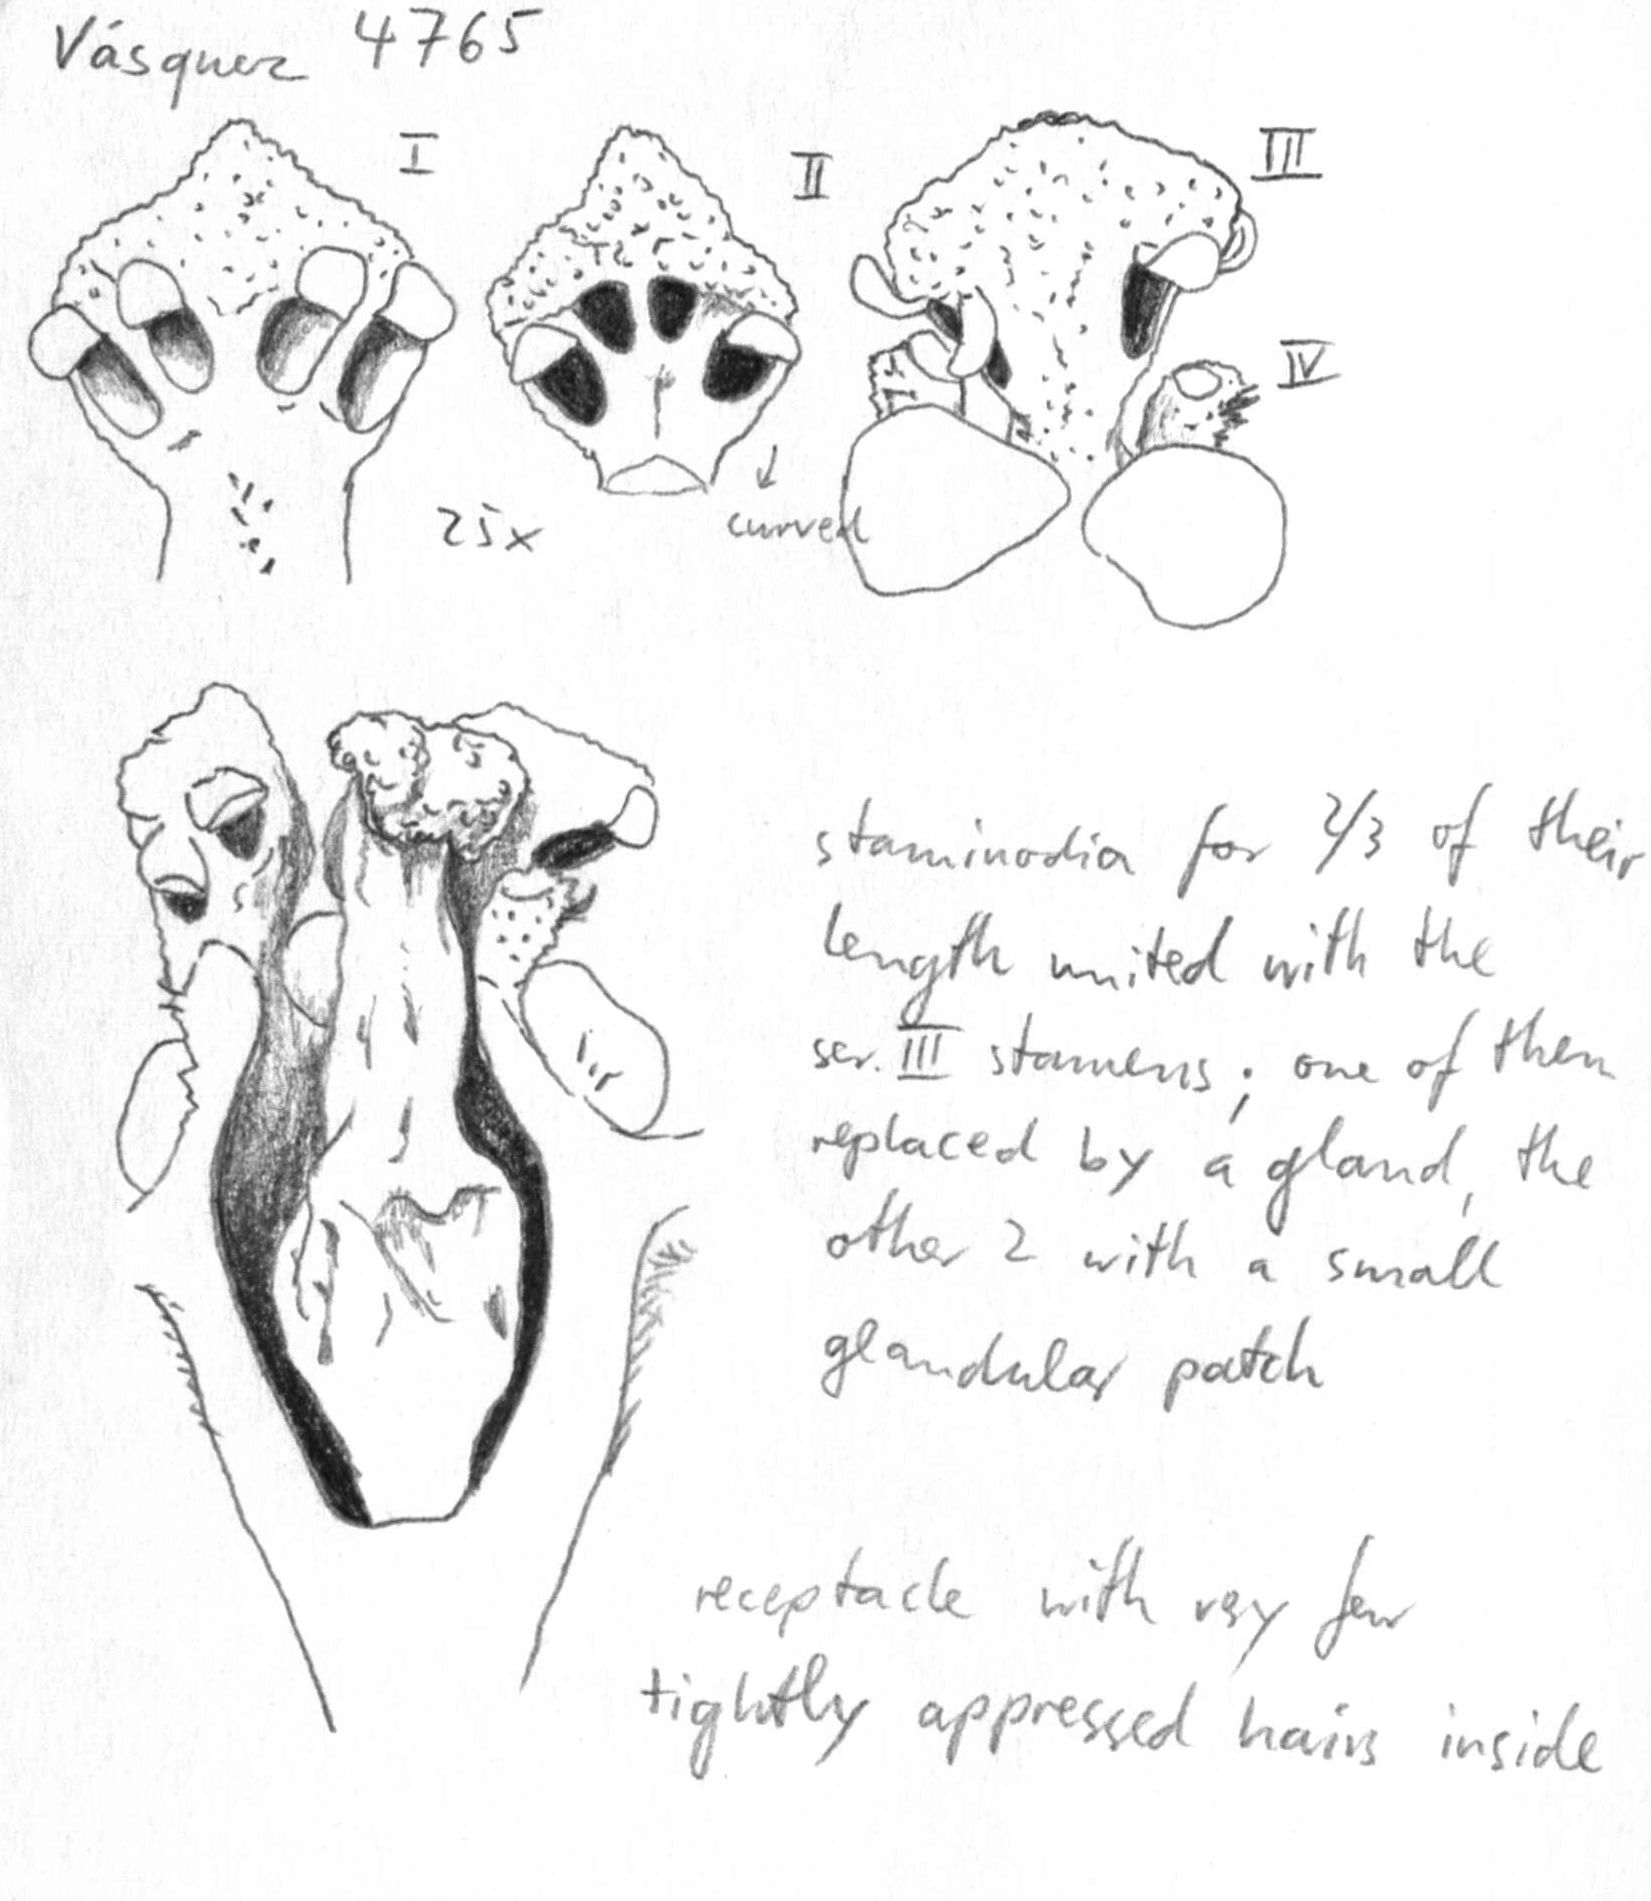 Vásquez 4765
I
II
III
IV
25x
curved
staminodia for 2/3 of their
length united with the
ser. III stamens; one of them
replaced by a gland, the
other 2 with a small
glandular patch
receptacle with very few
tightly appressed hairs inside